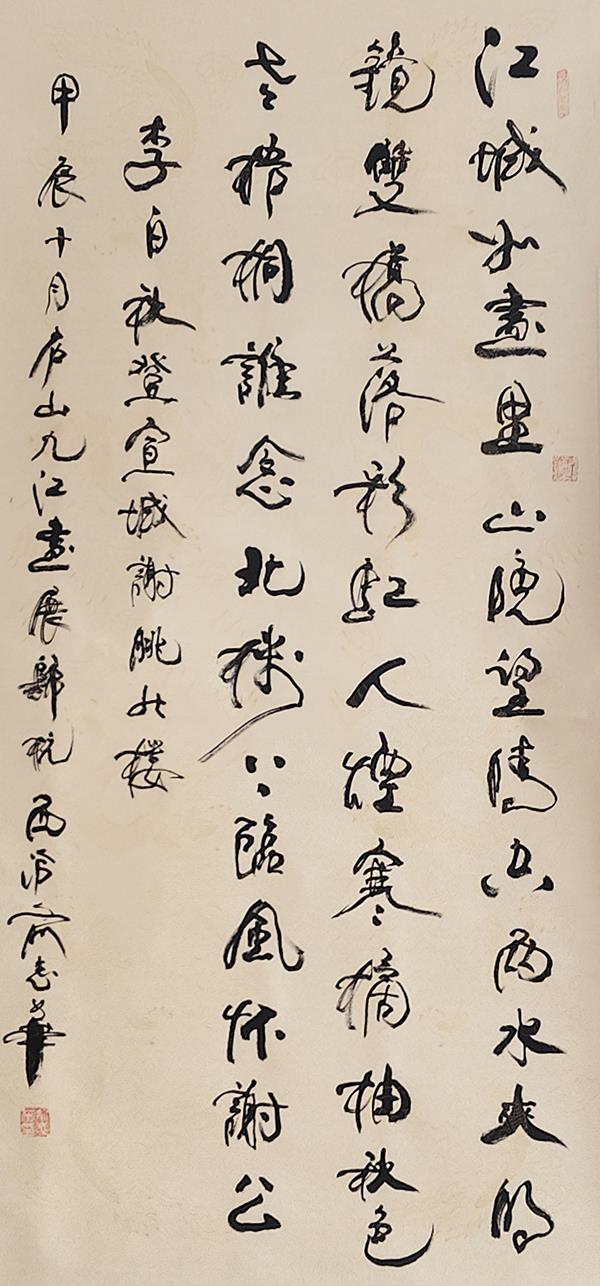 江城如畫里山晚望晴空兩水夾明
鏡雙橋落彩虹人煙寒橘柚秋色
老梧桐誰念北楼上臨風怀謝公
李白秋登宣城謝朓北楼
甲辰十月庐山九江畫展歸杭西泠俞志華